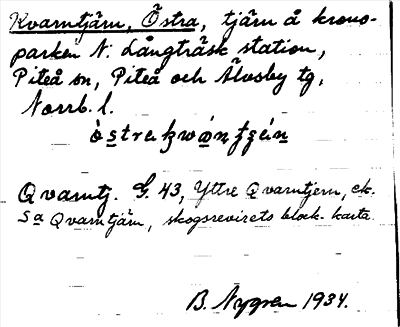 Kvarntjärn, Östra, tjärn å krono-
parken N. Långträsk station,
Piteå sn, Piteå och Älvsby tg,
Norrb. l.
Qvarntj. G. 43, Yttre Qvarntjern, ek.
Sa Qvarntjärn, skogsrevirets block. karta
B. Nygren 1934.